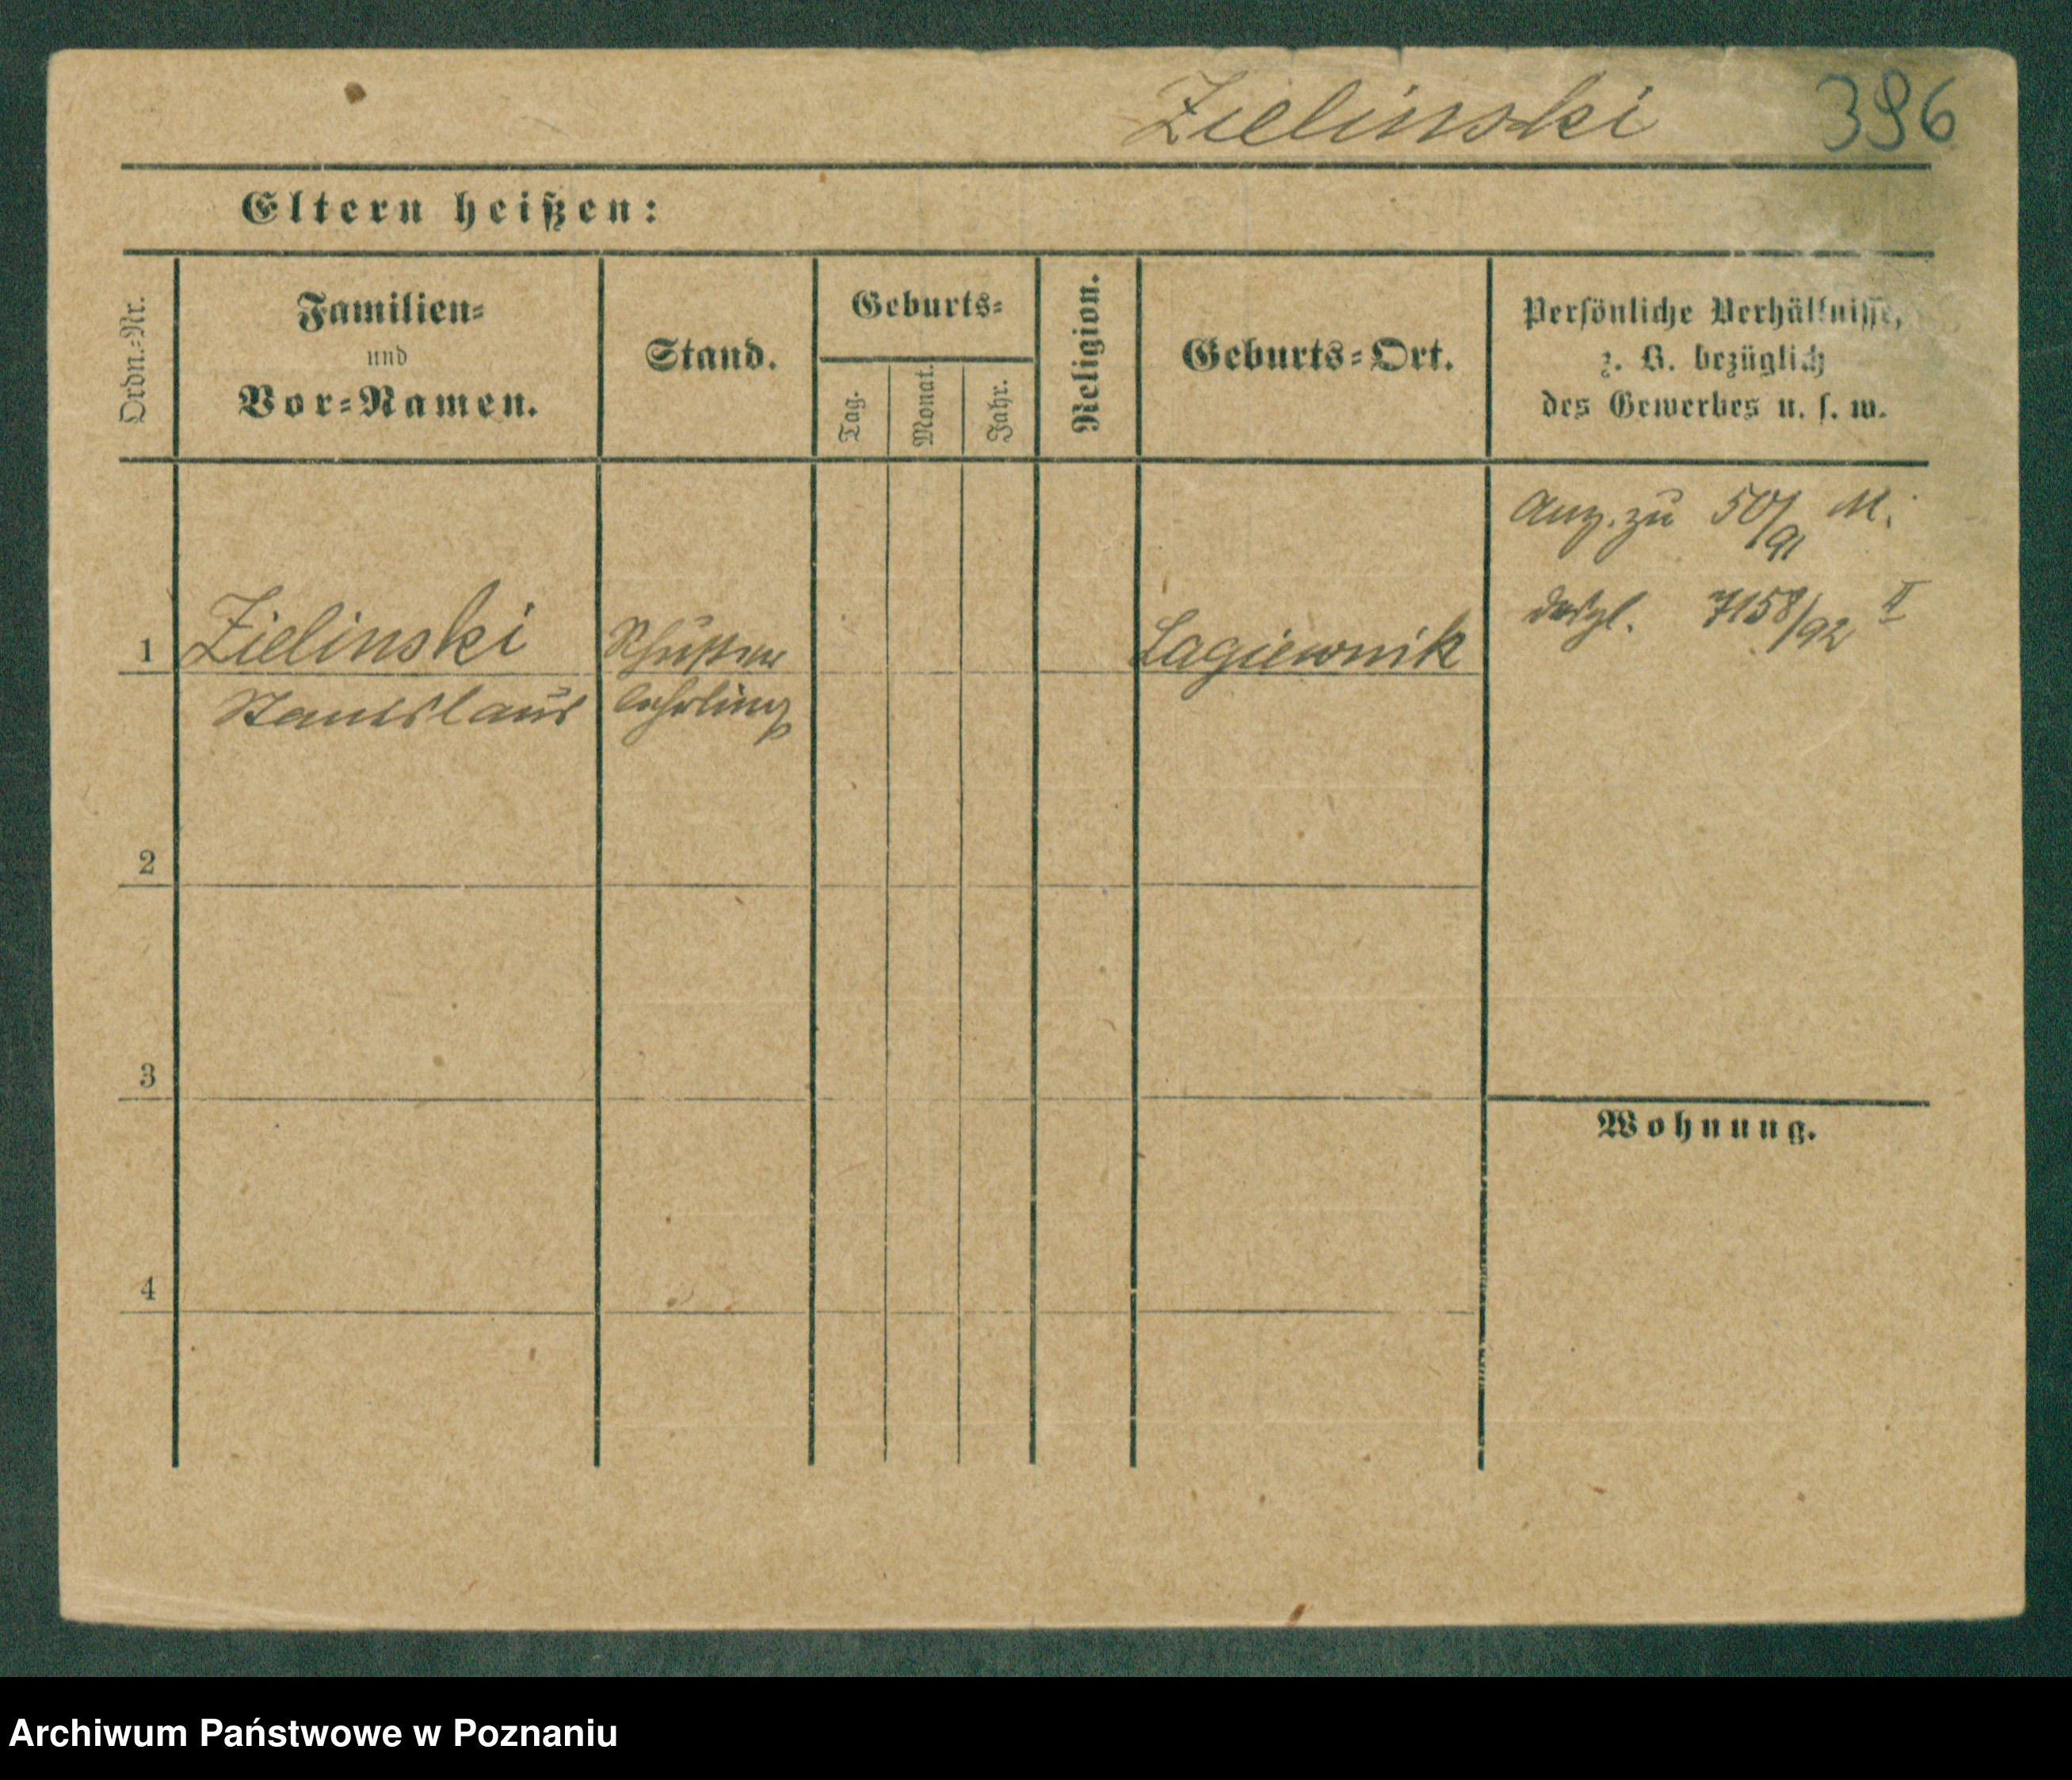 Zielinski 396
Eltern heißen:
Ordn.-Nr.
Familien-
und
Vor-Namen.
Stand.
Geburts-
Tag.
Monat.
Jahr.
Religion.
Geburts-Ort.
Persönliche Verhältnisse,
z. B. bezüglich
des Gewerbes u. s. w.
Anz. zu 50/91 M.
desgl. 7158/92 II
1 Zielinski
Stanislaus
lehrling
Lagiewnik
2
3
Wohnung.
4
Archiwum Państwowe w Poznaniu